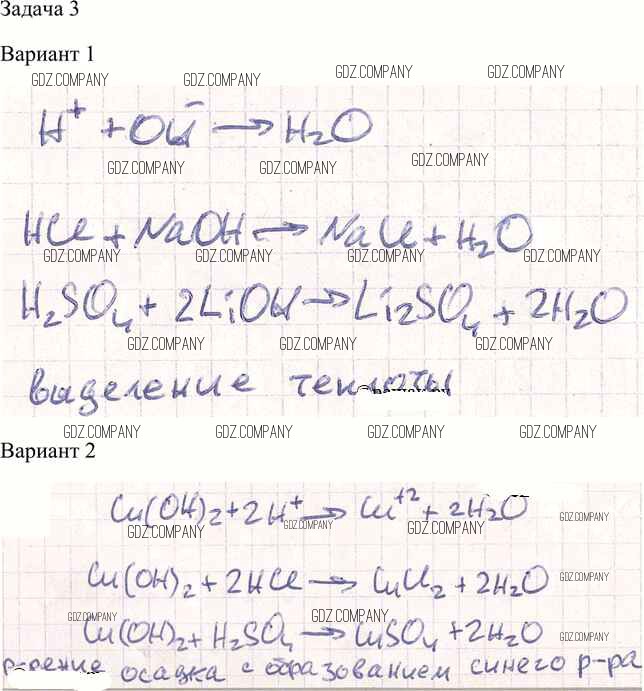 Задача 3
Вариант 1
GDZ.COMPANY GDZ.COMPANY GDZ.COMPANY GDZ.COMPANY
H⁺ + OH⁻ → H₂O
GDZ.COMPANY GDZ.COMPANY GDZ.COMPANY
HCl + NaOH → NaCl + H₂O
GDZ.COMPANY GDZ.COMPANY GDZ.COMPANY GDZ.COMPANY
H₂SO₄ + 2LiOH → Li₂SO₄ + 2H₂O
GDZ.COMPANY GDZ.COMPANY GDZ.COMPANY
выделение теплоты
GDZ.COMPANY GDZ.COMPANY GDZ.COMPANY GDZ.COMPANY
Вариант 2
Cu(OH)₂ + 2H⁺ → Cu⁺² + 2H₂O
GDZ.COMPANY GDZ.COMPANY GDZ.COMPANY
Cu(OH)₂ + 2HCl → CuCl₂ + 2H₂O
GDZ.COMPANY
GDZ.COMPANY GDZ.COMPANY
Cu(OH)₂ + H₂SO₄ → CuSO₄ + 2H₂O
GDZ.COMPANY
осадка с образованием синего р-ра